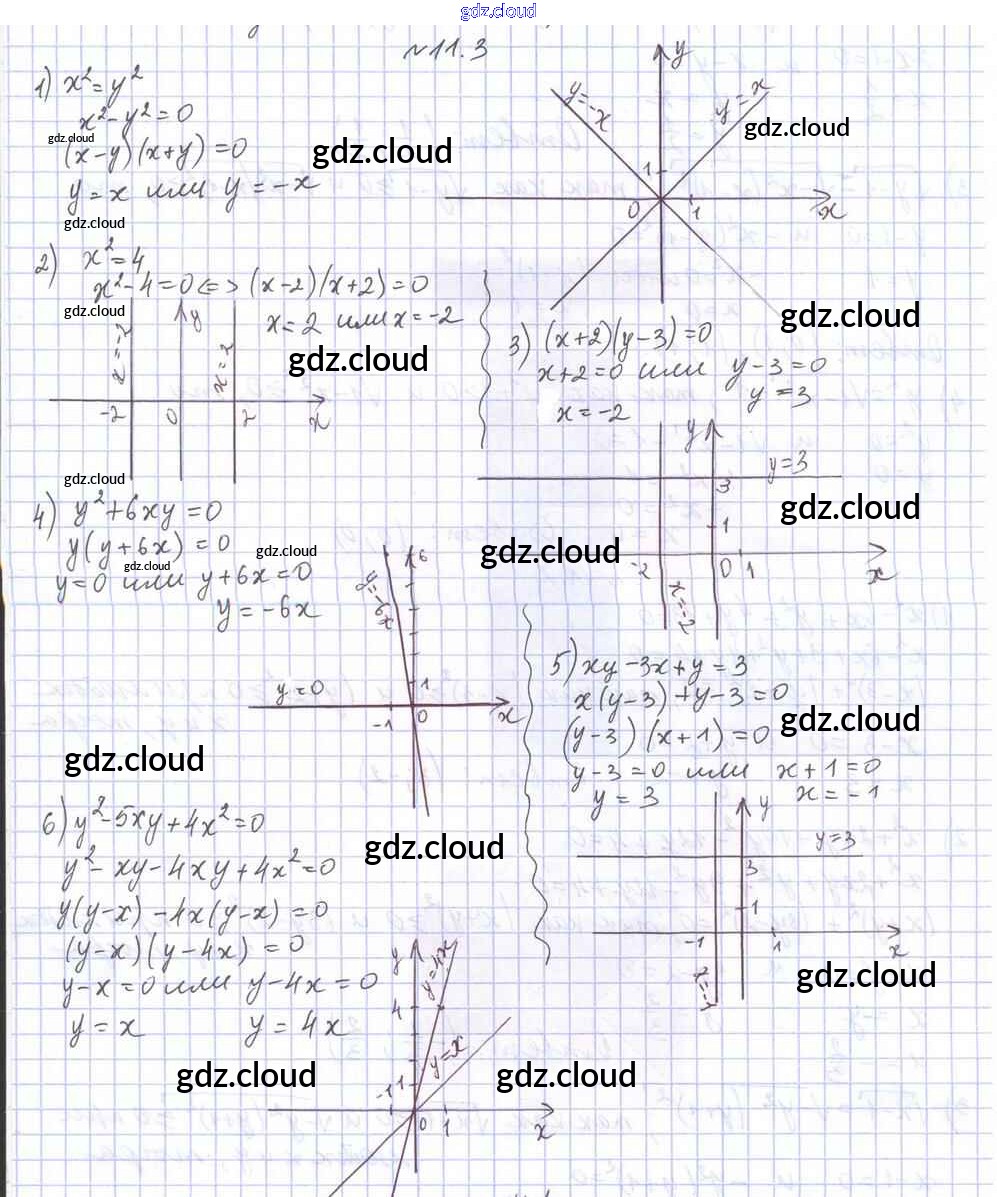 gdz.cloud
№11.3
1) x² = y²
x² - y² = 0
gdz.cloud
(x-y)(x+y) = 0
gdz.cloud
y = x или y = -x
gdz.cloud
y
y=-x
y=x
gdz.cloud
1
0
1
x
gdz.cloud
2) x² = 4
x² - 4 = 0 <=> (x-2)(x+2) = 0
x = 2 или x = -2
gdz.cloud
y
x=-2
gdz.cloud
-2
0
2
x
gdz.cloud
3) (x+2)(y-3) = 0
x+2 = 0 или y-3 = 0
x = -2
y = 3
y
y=3
3
gdz.cloud
1
-2
0
1
x
x=-2
4) y² + 6xy = 0
y(y+6x) = 0
gdz.cloud
gdz.cloud
y = 0 или y+6x = 0
y = -6x
gdz.cloud
6
y=-6x
y=0
1
-1
0
x
gdz.cloud
5) xy - 3x + y = 3
x(y-3) + y-3 = 0
gdz.cloud
(y-3)(x+1) = 0
y-3 = 0 или x+1 = 0
y = 3
x = -1
y
y=3
3
1
-1
1
x
x=-1
gdz.cloud
6) y² - 5xy + 4x² = 0
gdz.cloud
y² - xy - 4xy + 4x² = 0
y(y-x) - 4x(y-x) = 0
(y-x)(y-4x) = 0
y-x = 0 или y-4x = 0
y = x
y = 4x
y
y=4x
4
y=x
gdz.cloud
gdz.cloud
1
-1
0
1
x